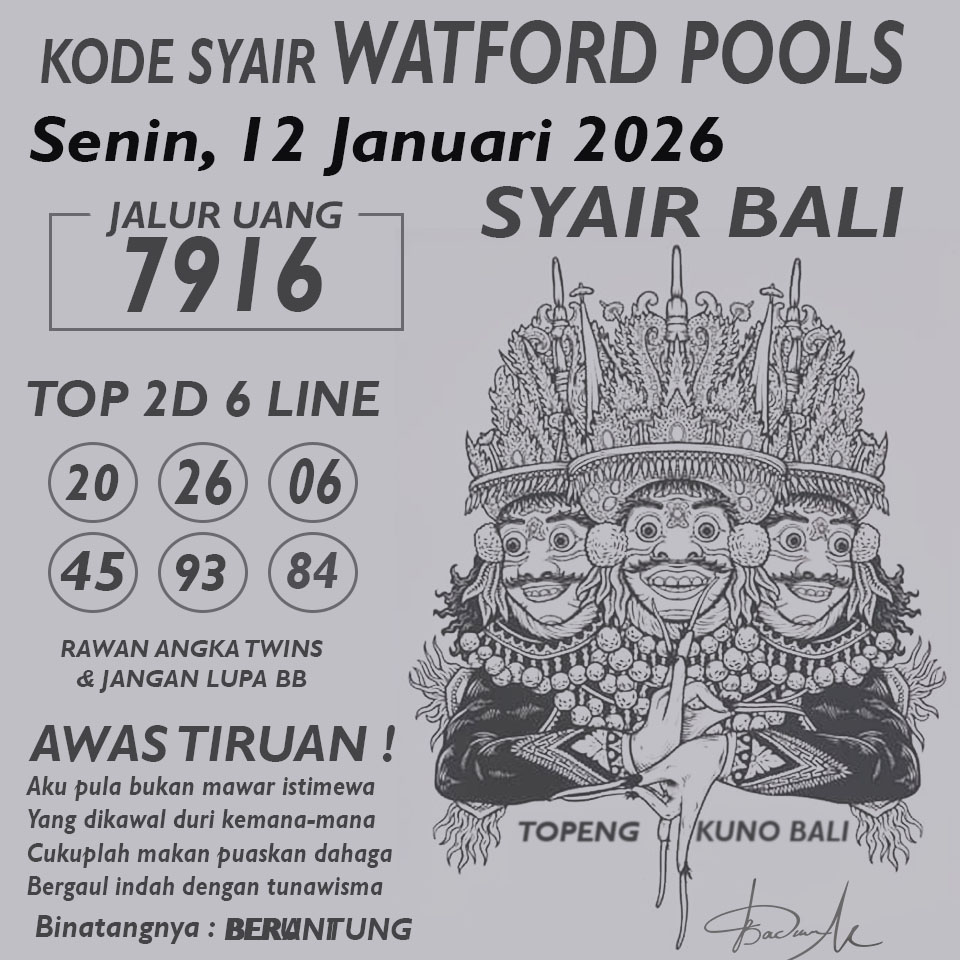 KODE SYAIR WATFORD POOLS
Senin, 12 Januari 2026
SYAIR BALI
JALUR UANG
7916
TOP 2D 6 LINE
20 26 06
45 93 84
RAWAN ANGKA TWINS
& JANGAN LUPA BB
AWAS TIRUAN !
Aku pula bukan mawar istimewa
Yang dikawal duri kemana-mana
Cukuplah makan puaskan dahaga
Bergaul indah dengan tunawisma
Binatangnya :
TOPENG KUNO BALI